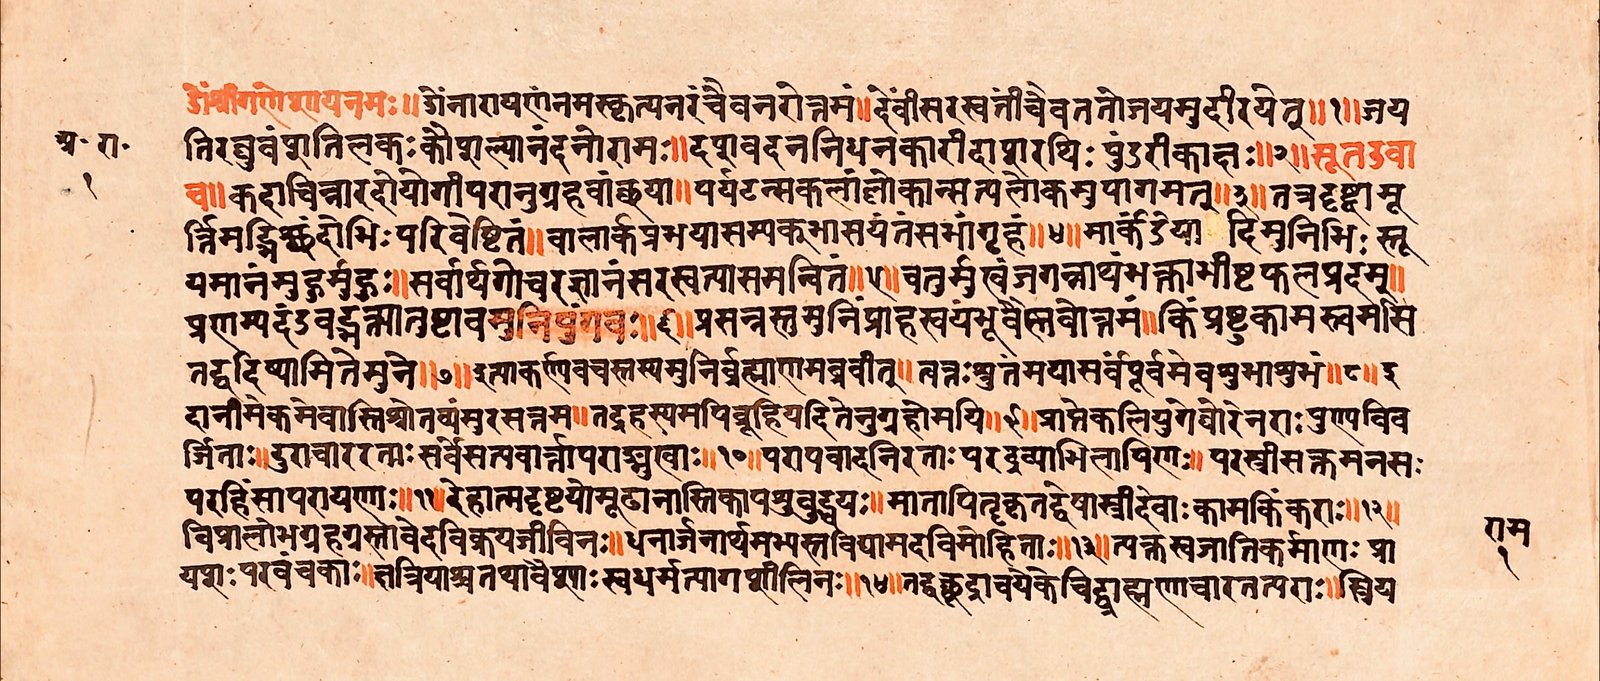 ॐश्रीगणेशायनमः॥ॐनारायणंनमस्कृत्यनरंचैवनरोत्तमं॥देवींसरस्वतींचैवततोजयमुदीरयेत्॥१॥जय
अ॰ रा॰
१
तिरघुवंशतिलकः कौशल्यानंदनोरामः॥दशवदननिधनकारीदाशरथिः पुंडरीकाक्षः॥२॥सूतउवा
च॥कदाचिन्नारदोयोगीपरानुग्रहवांछया॥पर्यटन्सकलांलोकान्सत्यलोकमुपागमत्॥३॥तत्रदृष्ट्वामू
र्त्तिमद्भिश्छंदोभिः परिवेष्टितं॥बालार्कप्रभयासम्यक्भासयंतंसभांगृहं॥४॥मार्कंडेया दिमुनिभिः स्तू
यमानंमुहुर्मुहुः॥सर्वार्थगोचरज्ञानंसरस्वत्यासमन्वितं॥५॥चतुर्मुखंजगन्नाथंभक्ताभीष्टफलप्रदम्॥
प्रणम्यदंडवद्भक्त्यातुष्टावमुनिपुंगवः॥६॥प्रसन्नस्तमुनिंप्राहस्वयंभूर्वैस्नवोत्तमं॥किंप्रष्टुकामस्त्वमसि
तद्वदिष्यामितेमुने॥७॥इत्याकर्ण्यवचस्तस्यमुनिर्ब्रह्माणमब्रवीत्॥त्वत्तः श्रुतंमयासर्वंपूर्वमेवशुभाशुभं॥८॥इ
दानीमेकमेवास्तिश्रोतव्यंसुरसत्तम॥तद्रहस्यमपिब्रूहियदितेनुग्रहोमयि॥९॥प्राप्तेकलियुगेघोरेनराः पुण्यविव
र्जिताः॥दुराचाररताः सर्वेसत्यवार्त्तापराङ्मुखाः॥१०॥परापवादनिरताः परद्रव्याभिलाषिणः॥परस्त्रीसक्तमनसः
परहिंसापरायणाः॥११॥देहात्मदृष्टयोमूढानास्तिकापशुबुद्धयः॥मातापितृकृतद्वेषास्त्रीदेवाः कामकिंकराः॥१२॥
विप्रालोभग्रहग्रस्तावेदविक्रयजीविनः॥धनार्जनार्थमभ्यस्तविद्यामदविमोहिताः॥१३॥त्यक्तस्वजातिकर्माणः प्रा
राम
१
यशः परवंचकाः॥क्षत्रियाश्चतथावैश्याः स्वधर्मत्यागशीलिनः॥१४॥तद्वच्छूद्राश्चयेकेचिद्ब्राह्मणाचारतत्पराः॥स्त्रिय